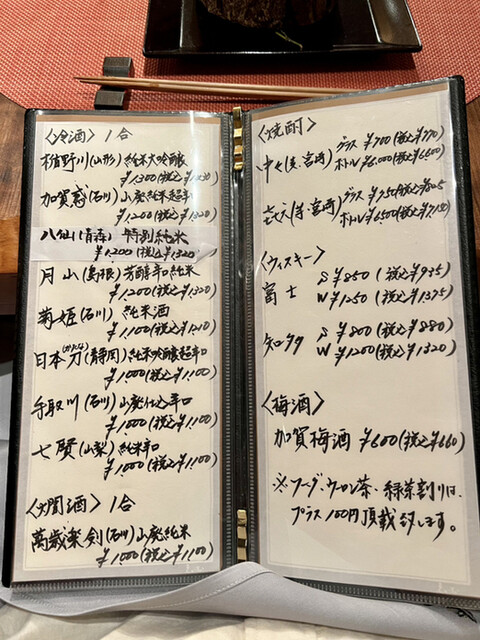 〈冷酒〉 1合
楯野川(山形) 純米大吟醸
¥1,300(税込¥1,430)
加賀 (石川) 山廃純米超辛口
¥1,200(税込¥1,320)
八仙(青森) 特別純米
¥1,200(税込¥1,320)
月山(島根) 芳醇辛口純米
¥1,200(税込¥1,320)
菊姫(石川) 純米酒
¥1,100(税込¥1,210)
日本刀(かたな)(静岡)純米吟醸超辛口
¥1,000(税込¥1,100)
手取川(石川)山廃仕込辛口
¥1,000(税込¥1,100)
七賢(山梨) 純米辛口
¥1,000(税込¥1,100)
〈燗酒〉 1合
萬歳楽 剣(石川)山廃純米
¥1,000(税込¥1,100)
〈焼酎〉
グラス ¥700(税込¥770)
中々(麦、宮崎) ボトル ¥6,000(税込¥6,600)
グラス ¥750(税込¥825)
㐂六(芋、宮崎) ボトル ¥6,500(税込¥7,150)
〈ウィスキー〉
富士 S ¥850 (税込¥935)
W ¥1250 (税込¥1375)
知多 S ¥800(税込¥880)
W ¥1200(税込¥1320)
〈梅酒〉
加賀梅酒 ¥600(税込¥660)
※ソーダ、ウーロン茶、緑茶割りは、
プラス100円頂戴致します。